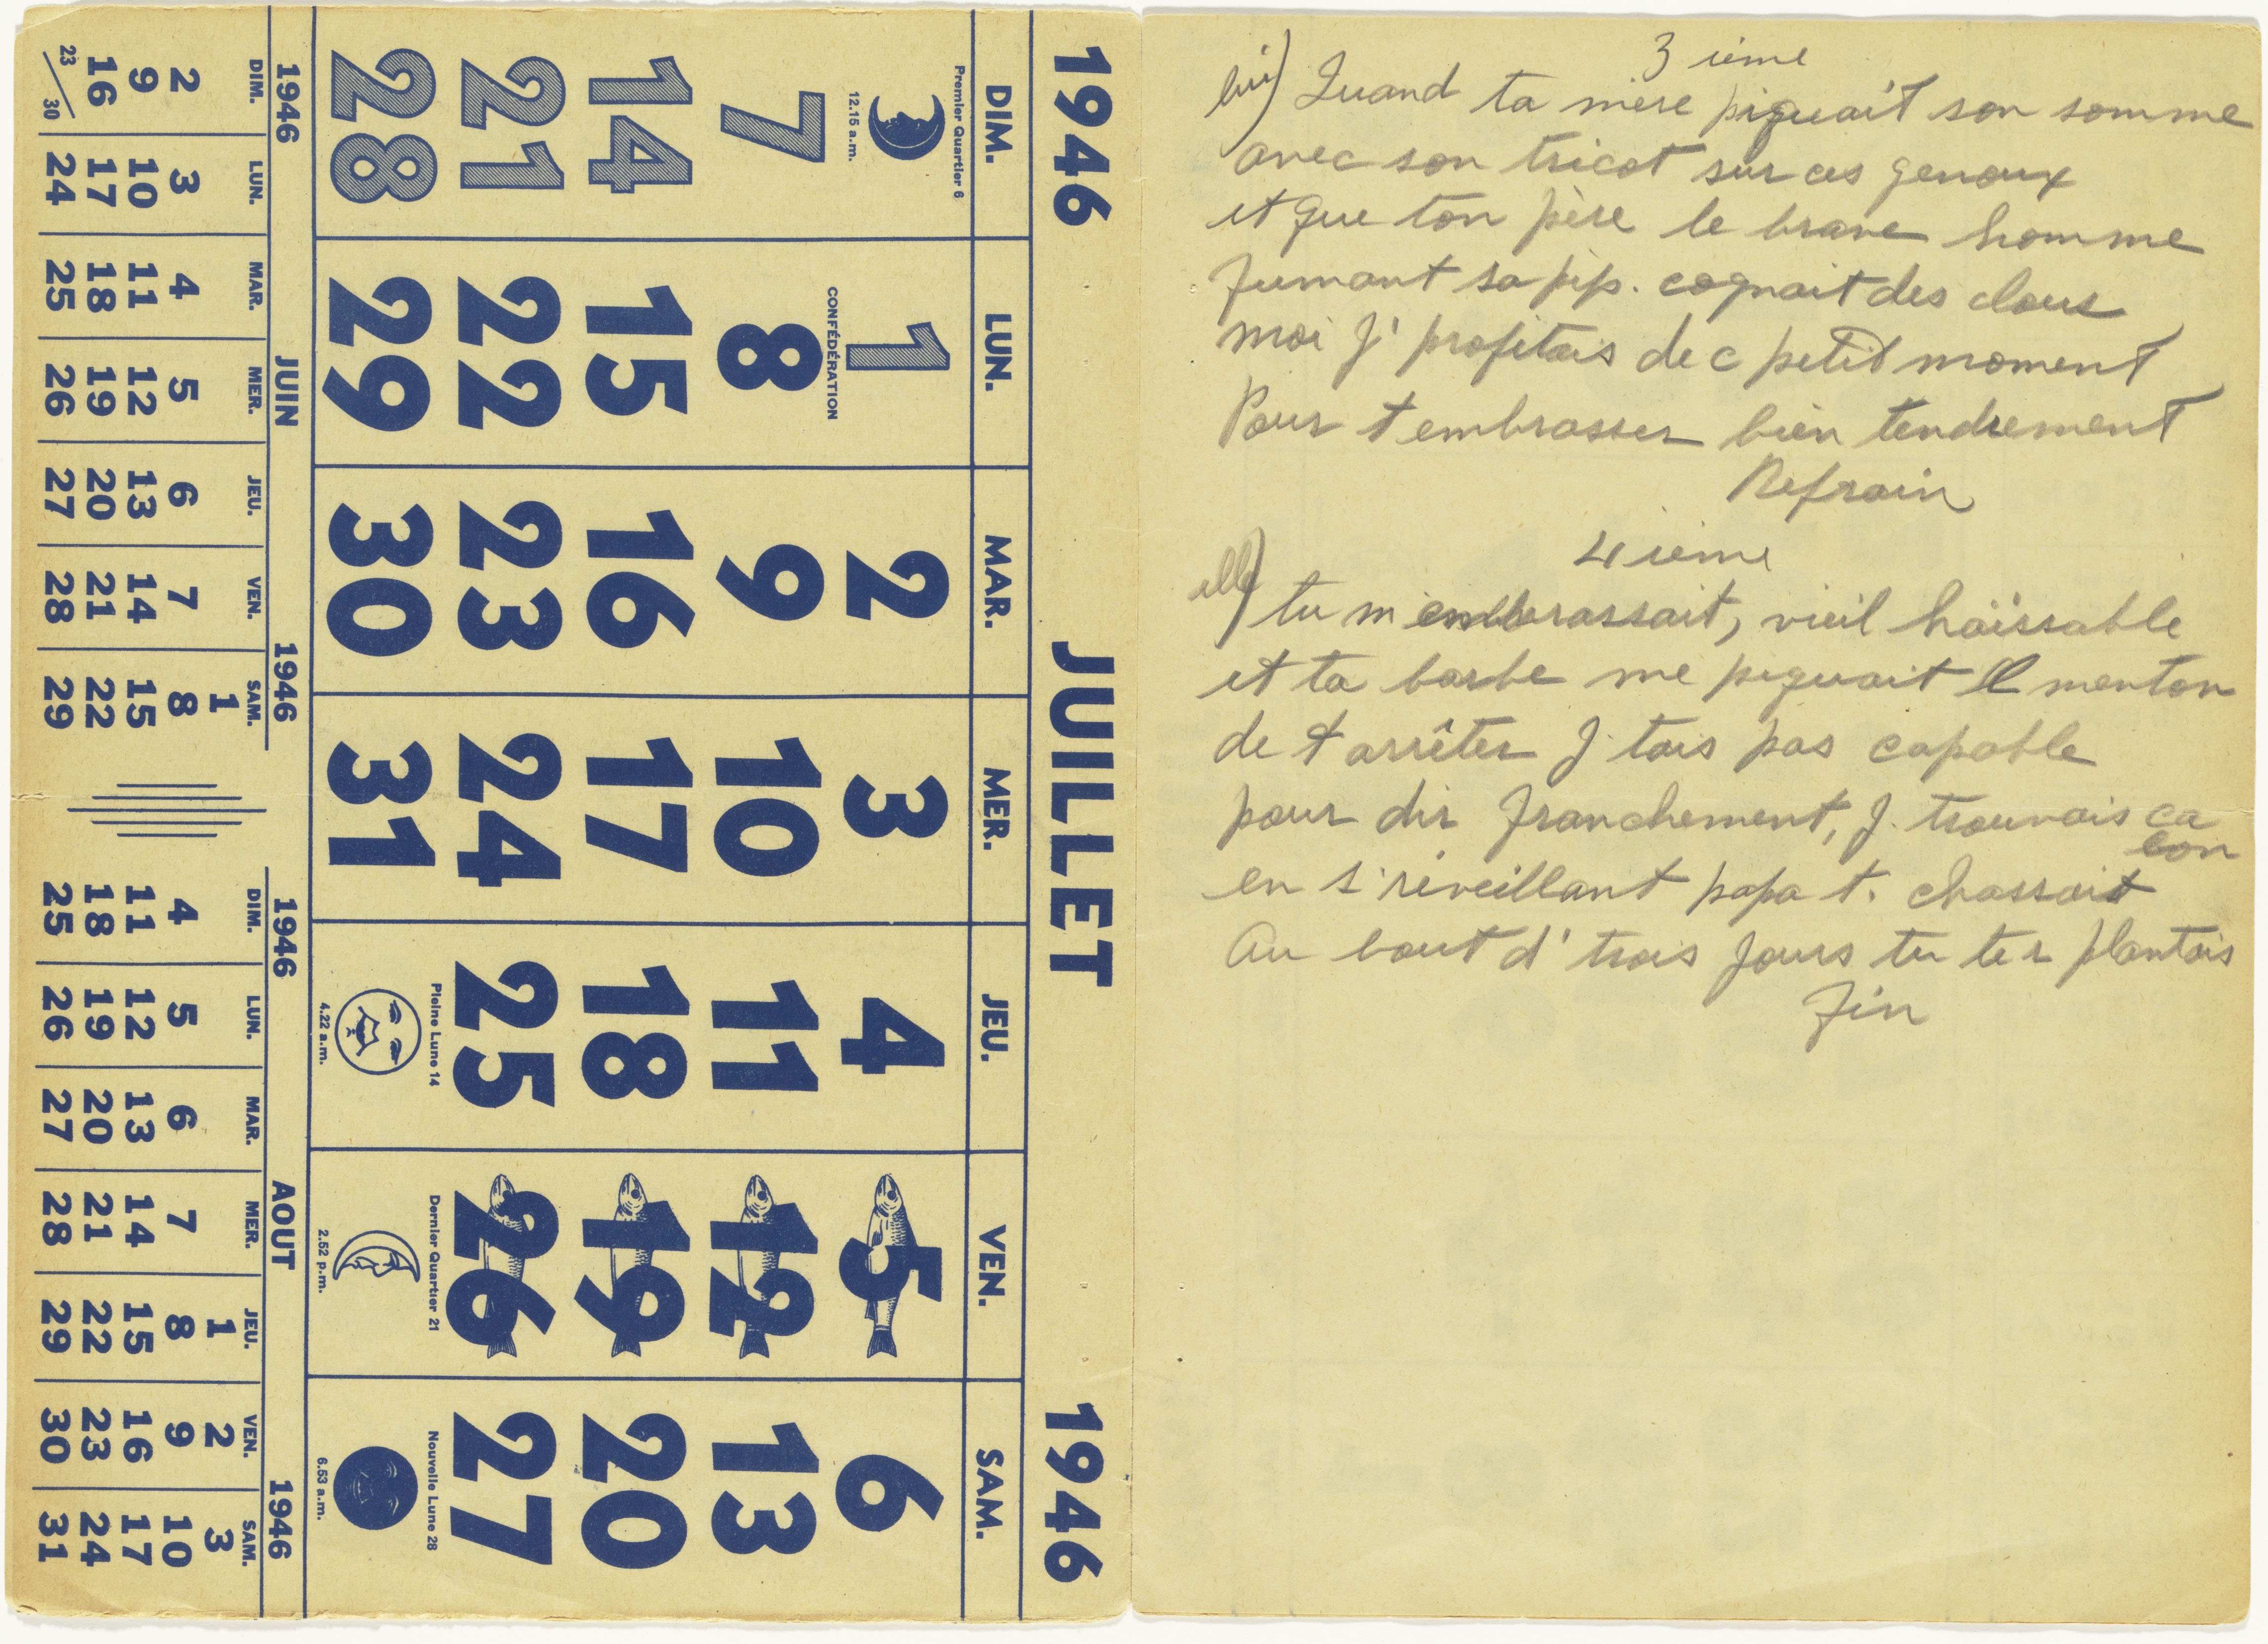 1946 JUILLET 1946
DIM. LUN. MAR. MER. JEU. VEN. SAM.
Premier Quartier 6
12.15 a.m.
1 2 3 4 5 6
CONFÉDÉRATION
7 8 9 10 11 12 13
14 15 16 17 18 19 20
21 22 23 24 25 26 27
Pleine Lune 14
4.22 a.m.
Dernier Quartier 21
2.52 p.m.
Nouvelle Lune 28
6.53 a.m.
28 29 30 31
1946 JUIN 1946
DIM. LUN. MAR. MER. JEU. VEN. SAM.
1
2 3 4 5 6 7 8
9 10 11 12 13 14 15
16 17 18 19 20 21 22
23/30 24 25 26 27 28 29
1946 AOUT 1946
DIM. LUN. MAR. MER. JEU. VEN. SAM.
1 2 3
4 5 6 7 8 9 10
11 12 13 14 15 16 17
18 19 20 21 22 23 24
25 26 27 28 29 30 31
3 ième
lui) Quand ta mère piquait son somme
avec son tricot sur ces genoux
et que ton père le brave homme
fumant sa pip. cognait des clous
moi j' profitais de c petit moment
Pour t embrasser bien tendrement
Refrain
4 ième
elle) tu m embrassait, vieil haïssable
et ta barbe me piquait l menton
de t arrêter j. tais pas capable
pour dir franchement, j. trouvais ca
bon
en s' réveillant papa t. chassait
Au bout d' trois jours tu te r plantais
Fin